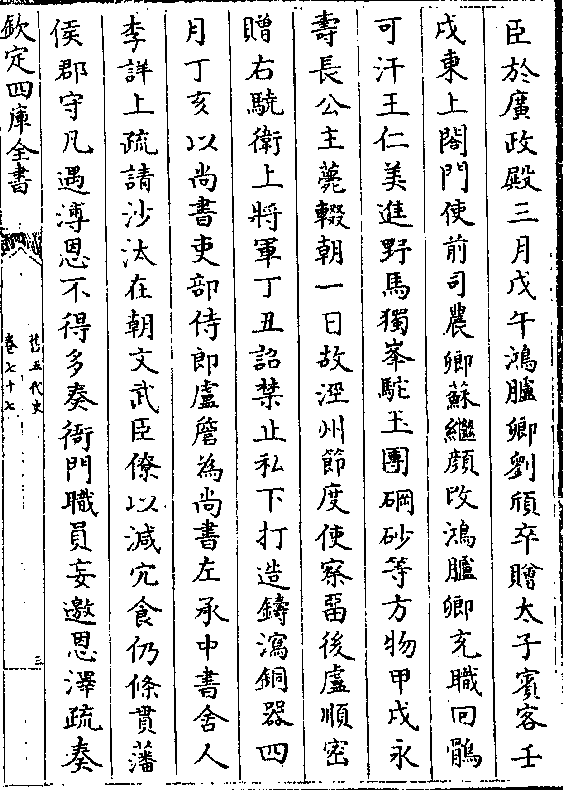 臣於廣政殿三月戊午鴻臚卿劉頎卒贈太子賓客壬
戌東上閤門使前司農卿蘇繼顏改鴻臚卿充職回鶻
可汗王仁美進野馬獨峯駝玉團硇砂等方物甲戌永
壽長公主薨輟朝一日故涇州節度使察留後盧順密
贈右驍衛上將軍丁丑詔禁止私下打造鑄瀉銅器四
月丁亥以尚書吏部侍郎盧詹為尚書左丞中書舍人
李詳上疏請沙汰在朝文武臣僚以減冗食仍條貫藩
侯郡守凡遇溥恩不得多奏衙門職員妄邀恩澤疏奏
欽定四庫全書
舊五代史
卷七十七
三